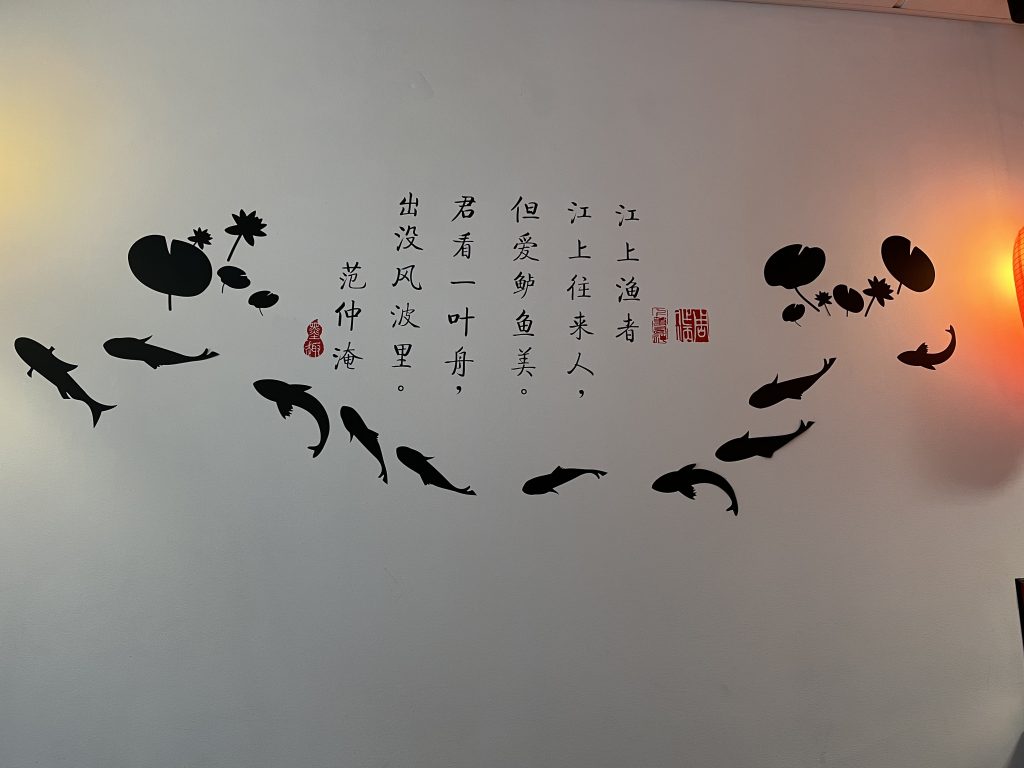 江上渔者
江上往来人，
但爱鲈鱼美。
君看一叶舟，
出没风波里。
范仲淹